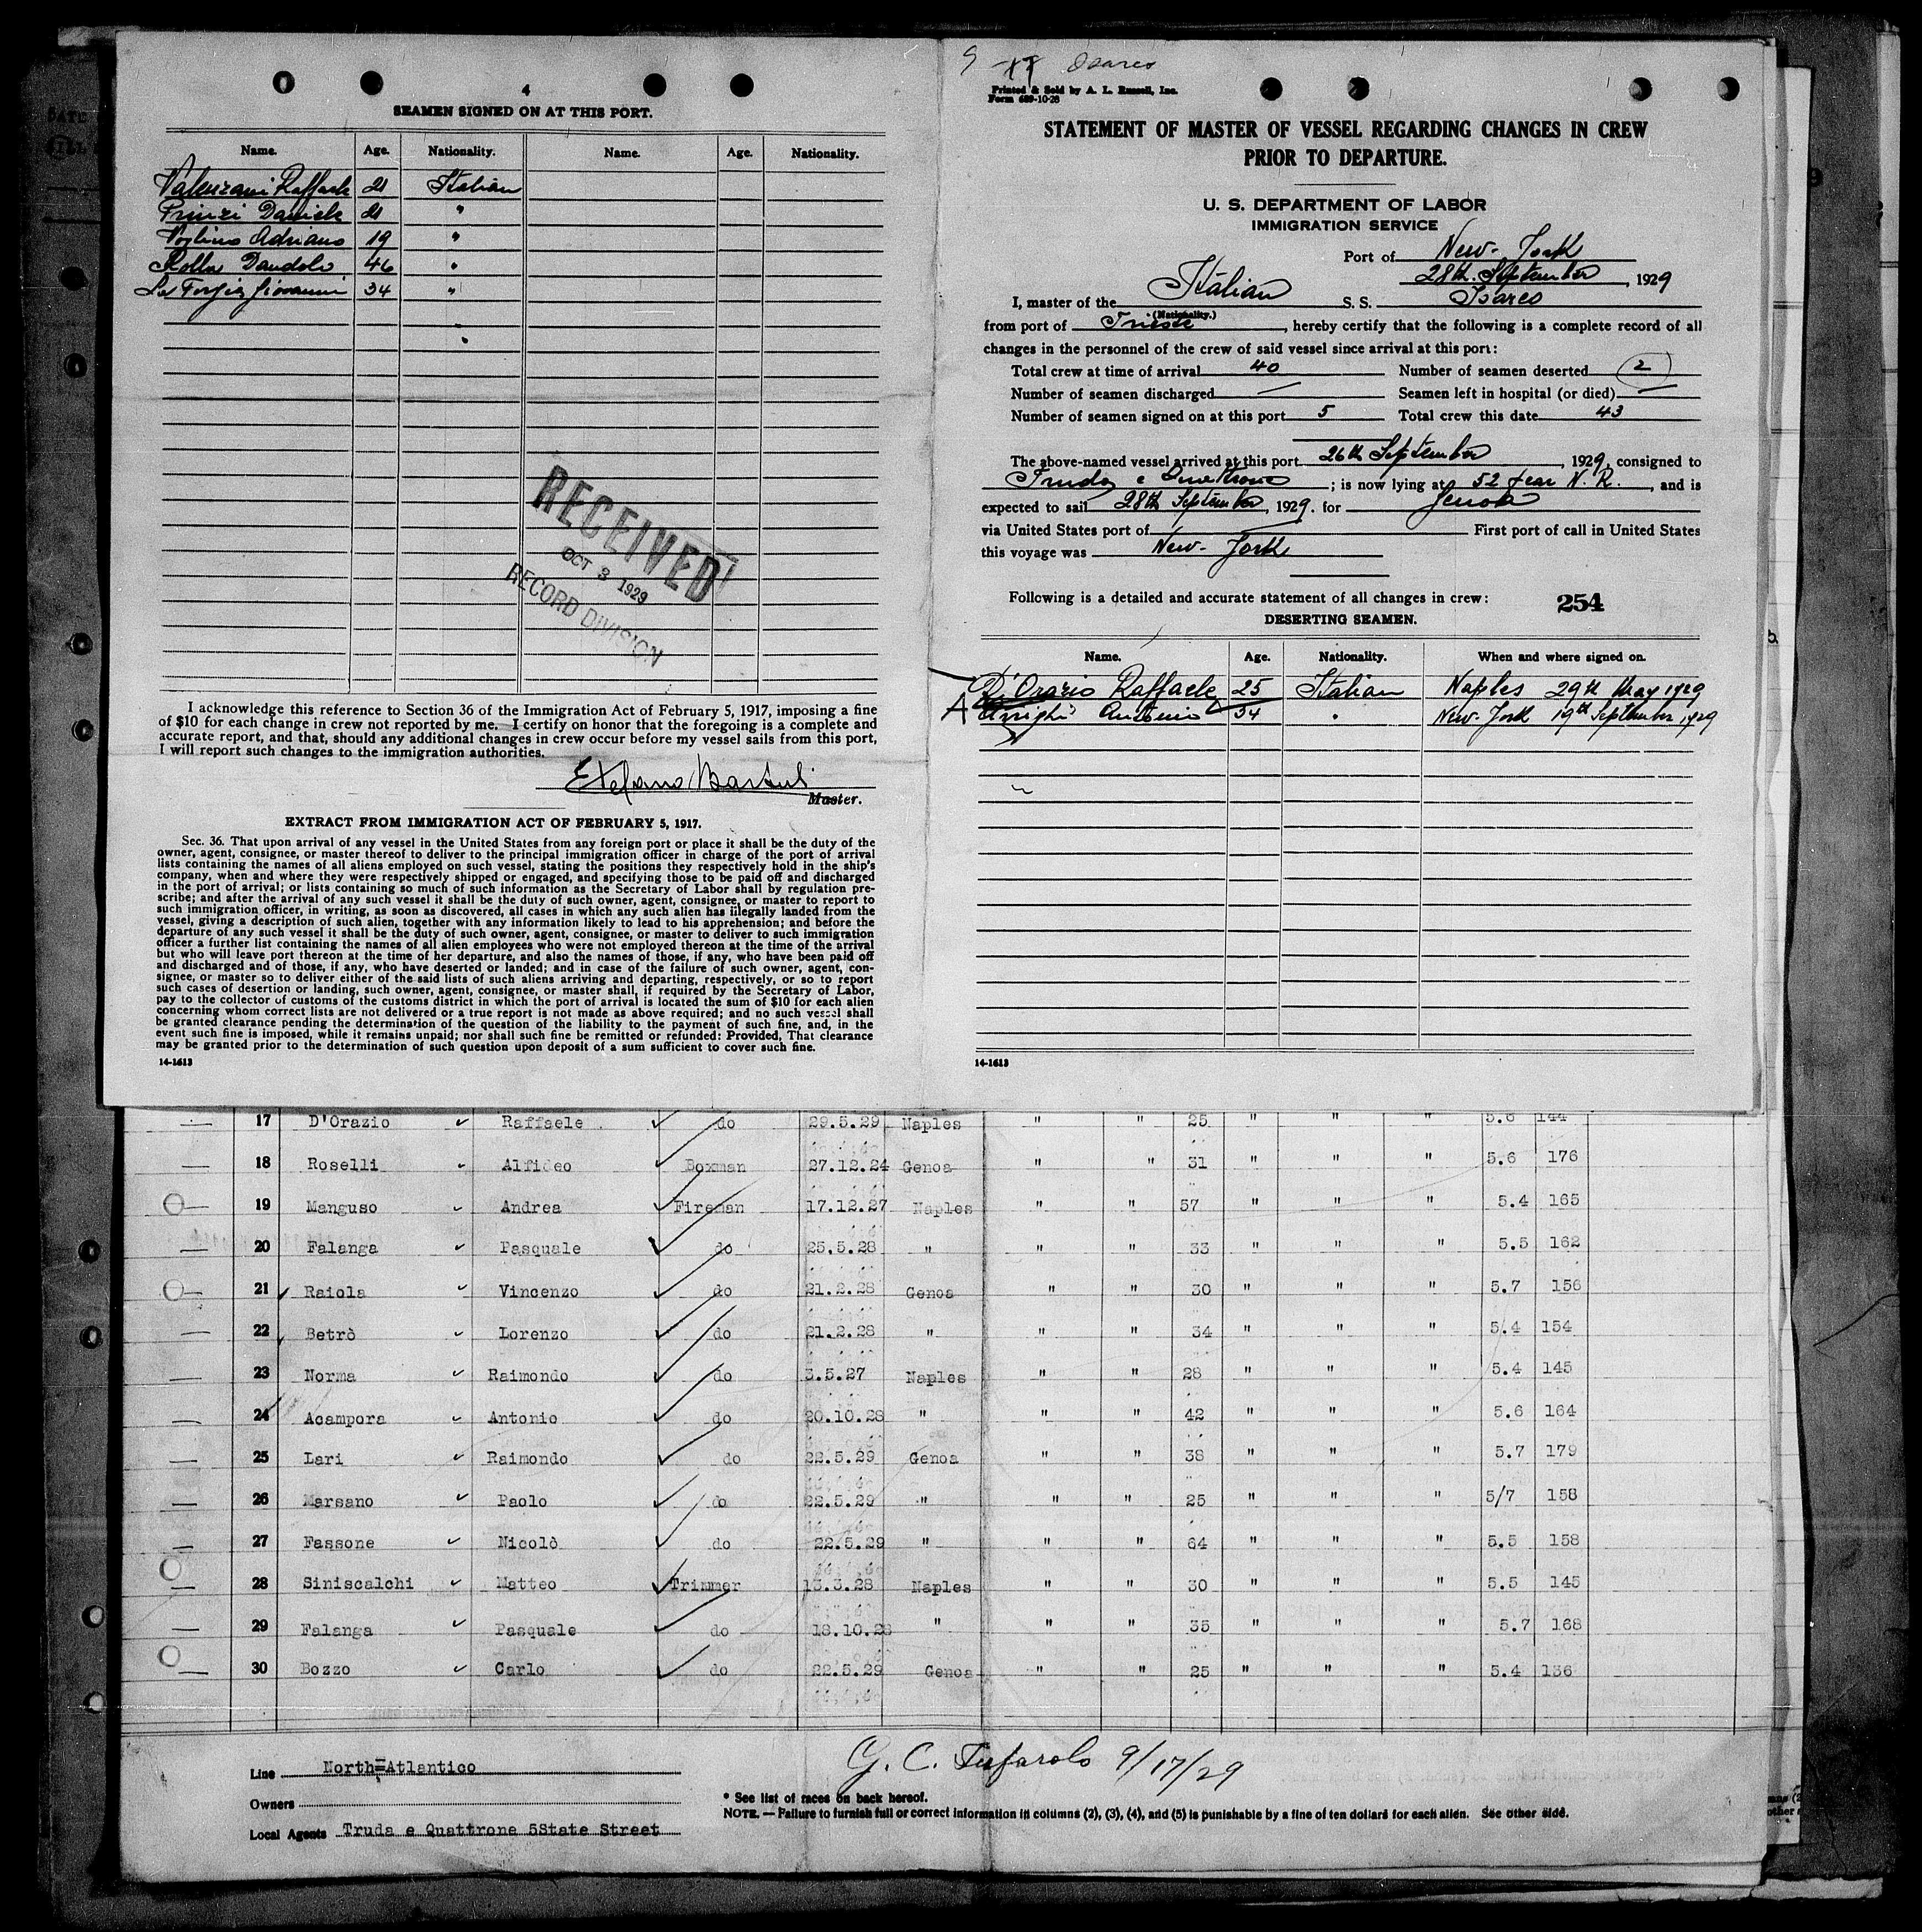 4
SEAMEN SIGNED ON AT THIS PORT.
Name. Age. Nationality. Name. Age. Nationality.
Valenzani Raffaele 21 Italian
Prinzi Daniele 21 "
Voglino Adriano 19 "
Rolla Dandolo 46 "
La Forgia Giovanni 34 "
"
"
RECEIVED
OCT 3 1929
RECORD DIVISION
I acknowledge this reference to Section 36 of the Immigration Act of February 5, 1917, imposing a fine
of $10 for each change in crew not reported by me. I certify on honor that the foregoing is a complete and
accurate report, and that, should any additional changes in crew occur before my vessel sails from this port,
I will report such changes to the immigration authorities.
Master.
EXTRACT FROM IMMIGRATION ACT OF FEBRUARY 5, 1917.
Sec. 36. That upon arrival of any vessel in the United States from any foreign port or place it shall be the duty of the
owner, agent, consignee, or master thereof to deliver to the principal immigration officer in charge of the port of arrival
lists containing the names of all aliens employed on such vessel, stating the positions they respectively hold in the ship's
company, when and where they were respectively shipped or engaged, and specifying those to be paid off and discharged
in the port of arrival; or lists containing so much of such information as the Secretary of Labor shall by regulation pre-
scribe; and after the arrival of any such vessel it shall be the duty of such owner, agent, consignee, or master to report to
such immigration officer, in writing, as soon as discovered, all cases in which any such alien has illegally landed from the
vessel, giving a description of such alien, together with any information likely to lead to his apprehension; and before the
departure of any such vessel it shall be the duty of such owner, agent, consignee, or master to deliver to such immigration
officer a further list containing the names of all alien employees who were not employed thereon at the time of the arrival
but who will leave port thereon at the time of her departure, and also the names of those, if any, who have been paid off
and discharged and of those, if any, who have deserted or landed; and in case of the failure of such owner, agent, con-
signee, or master so to deliver either of the said lists of such aliens arriving and departing, respectively, or so to report
such cases of desertion or landing, such owner, agent, consignee, or master shall, if required by the Secretary of Labor,
pay to the collector of customs of the customs district in which the port of arrival is located the sum of $10 for each alien
concerning whom correct lists are not delivered or a true report is not made as above required; and no such vessel shall
be granted clearance pending the determination of the question of the liability to the payment of such fine, and, in the
event such fine is imposed, while it remains unpaid; nor shall such fine be remitted or refunded: Provided, That clearance
may be granted prior to the determination of such question upon deposit of a sum sufficient to cover such fine.
14-1613
Isarco
Printed & Sold by A. L. Russell, Inc.
Form 689-10-28
STATEMENT OF MASTER OF VESSEL REGARDING CHANGES IN CREW
PRIOR TO DEPARTURE.
U. S. DEPARTMENT OF LABOR
IMMIGRATION SERVICE
Port of New-York
28th. September, 1929
I, master of the Italian S. S. Isarco
(Nationality.)
from port of Trieste, hereby certify that the following is a complete record of all
changes in the personnel of the crew of said vessel since arrival at this port:
Total crew at time of arrival 40 Number of seamen deserted 2
Number of seamen discharged — Seamen left in hospital (or died) —
Number of seamen signed on at this port 5 Total crew this date 43
The above-named vessel arrived at this port 26th September, 1929, consigned to
Truda e Quattrone; is now lying at 52 N. R., and is
expected to sail 28th September, 1929. for Genoa
via United States port of First port of call in United States
this voyage was New-York
Following is a detailed and accurate statement of all changes in crew: 254
DESERTING SEAMEN.
Name. Age. Nationality. When and where signed on.
D'Orazio Raffaele 25 Italian Naples 29th May 1929
A Arrighi Antonio 34 " New-York 19th September 1929
14-1613
17 D'Orazio Raffaele do 29.5.29 Naples " " 25 " " " 5.6 144
18 Roselli Alfideo Boxman 27.12.24 Genoa " " 31 " " " 5.6 176
19 Manguso Andrea Fireman 17.12.27 Naples " " 57 " " " 5.4 165
20 Falanga Pasquale do 25.5.28 " " " 33 " " " 5.5 162
21 Raiola Vincenzo do 21.2.28 Genoa " " 30 " " " 5.7 156
22 Betrò Lorenzo do 21.2.28 " " " 34 " " " 5/4 154
23 Norma Raimondo do 3.5.27 Naples " " 28 " " " 5.4 145
24 Acampora Antonio do 20.10.28 " " " 42 " " " 5.6 164
25 Lari Raimondo do 22.5.29 Genoa " " 38 " " " 5.7 179
26 Marsano Paolo do 22.5.29 " " " 25 " " " 5/7 158
27 Fassone Nicolò do 22.5.29 " " " 64 " " " 5.5 158
28 Siniscalchi Matteo Trimmer 13.3.28 Naples " " 30 " " " 5.5 145
29 Falanga Pasquale do 18.10.28 " " " 35 " " " 5.7 168
30 Bozzo Carlo do 22.5.29 Genoa " " 25 " " " 5.4 136
Line North=Atlantico
G. C. Tufarolo 9/17/29
Owners
* See list of races on back hereof.
NOTE. — Failure to furnish full or correct information in columns (2), (3), (4), and (5) is punishable by a fine of ten dollars for each alien. See other side.
Local Agents Truda e Quattrone 5State Street